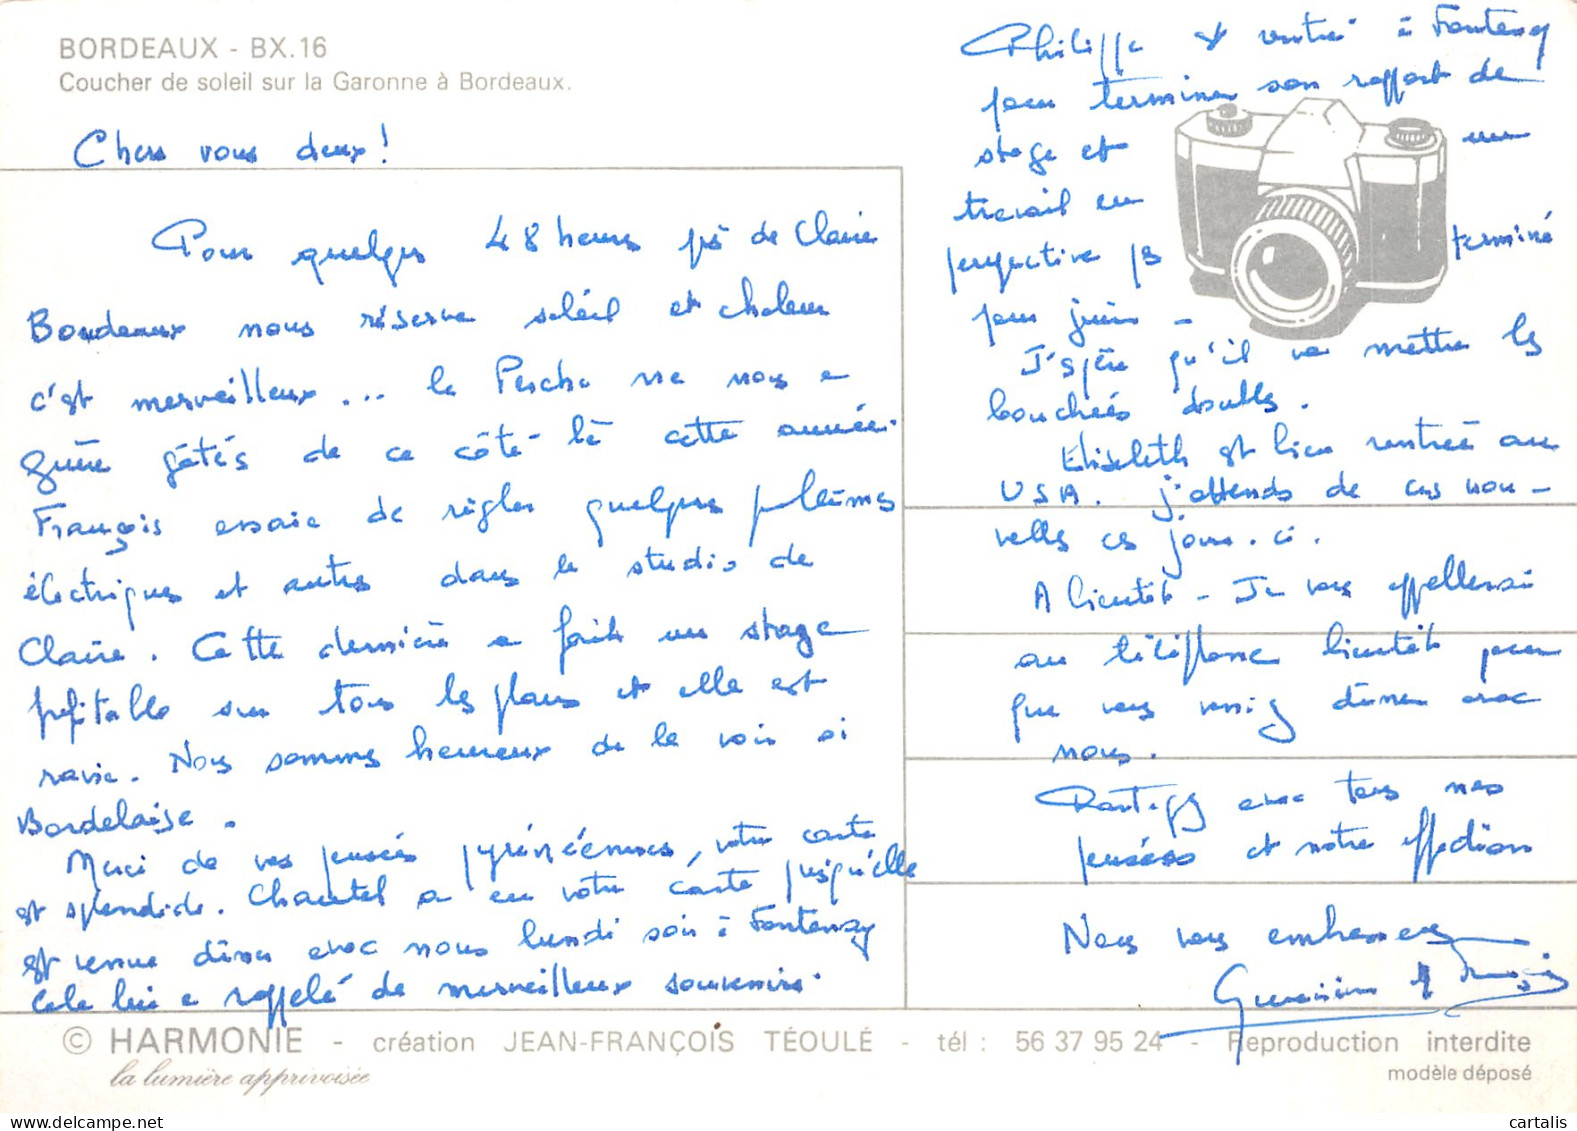 BORDEAUX - BX.16
Coucher de soleil sur la Garonne à Bordeaux.
Chers vous deux !
Pour quelques 48 heures près de Claire
Bordeaux nous réserve soleil et chaleur
c'est merveilleux ... le ne nous a
guère gâtés de ce côté-là cette année.
François essaie de régler quelques problèmes
électriques et autres dans le studio de
Claire. Cette dernière a fait un stage
profitable sur tous les plans et elle est
ravie. Nous sommes heureux de la voir si
Bordelaise.
Merci de vos pensées pyrénéennes, votre carte
est splendide. Chantal a eu votre carte puisqu'elle
est venue dîner avec nous lundi soir à Fontenay
Cela lui a rappelé de merveilleux souvenirs.
Philippe est rentré à Fontenay
pour terminer son rapport de
stage et un
travail en
perspective pas terminé
pour juin -
J'espère qu'il va mettre les
bouchées doubles.
Elisabeth est bien rentrée aux
USA. J'attends de ces nou-
velles ces jours-ci.
A bientôt - Je vous appellerai
au téléphone bientôt pour
que vous veniez dîner avec
nous.
Partagez avec tous nos
pensées et notre affection
Nous vous embrassons
François
© HARMONIE - création JEAN-FRANÇOIS TÉOULÉ - tél : 56 37 95 24 - Reproduction interdite
la lumière apprivoisée
modèle déposé
cartalis